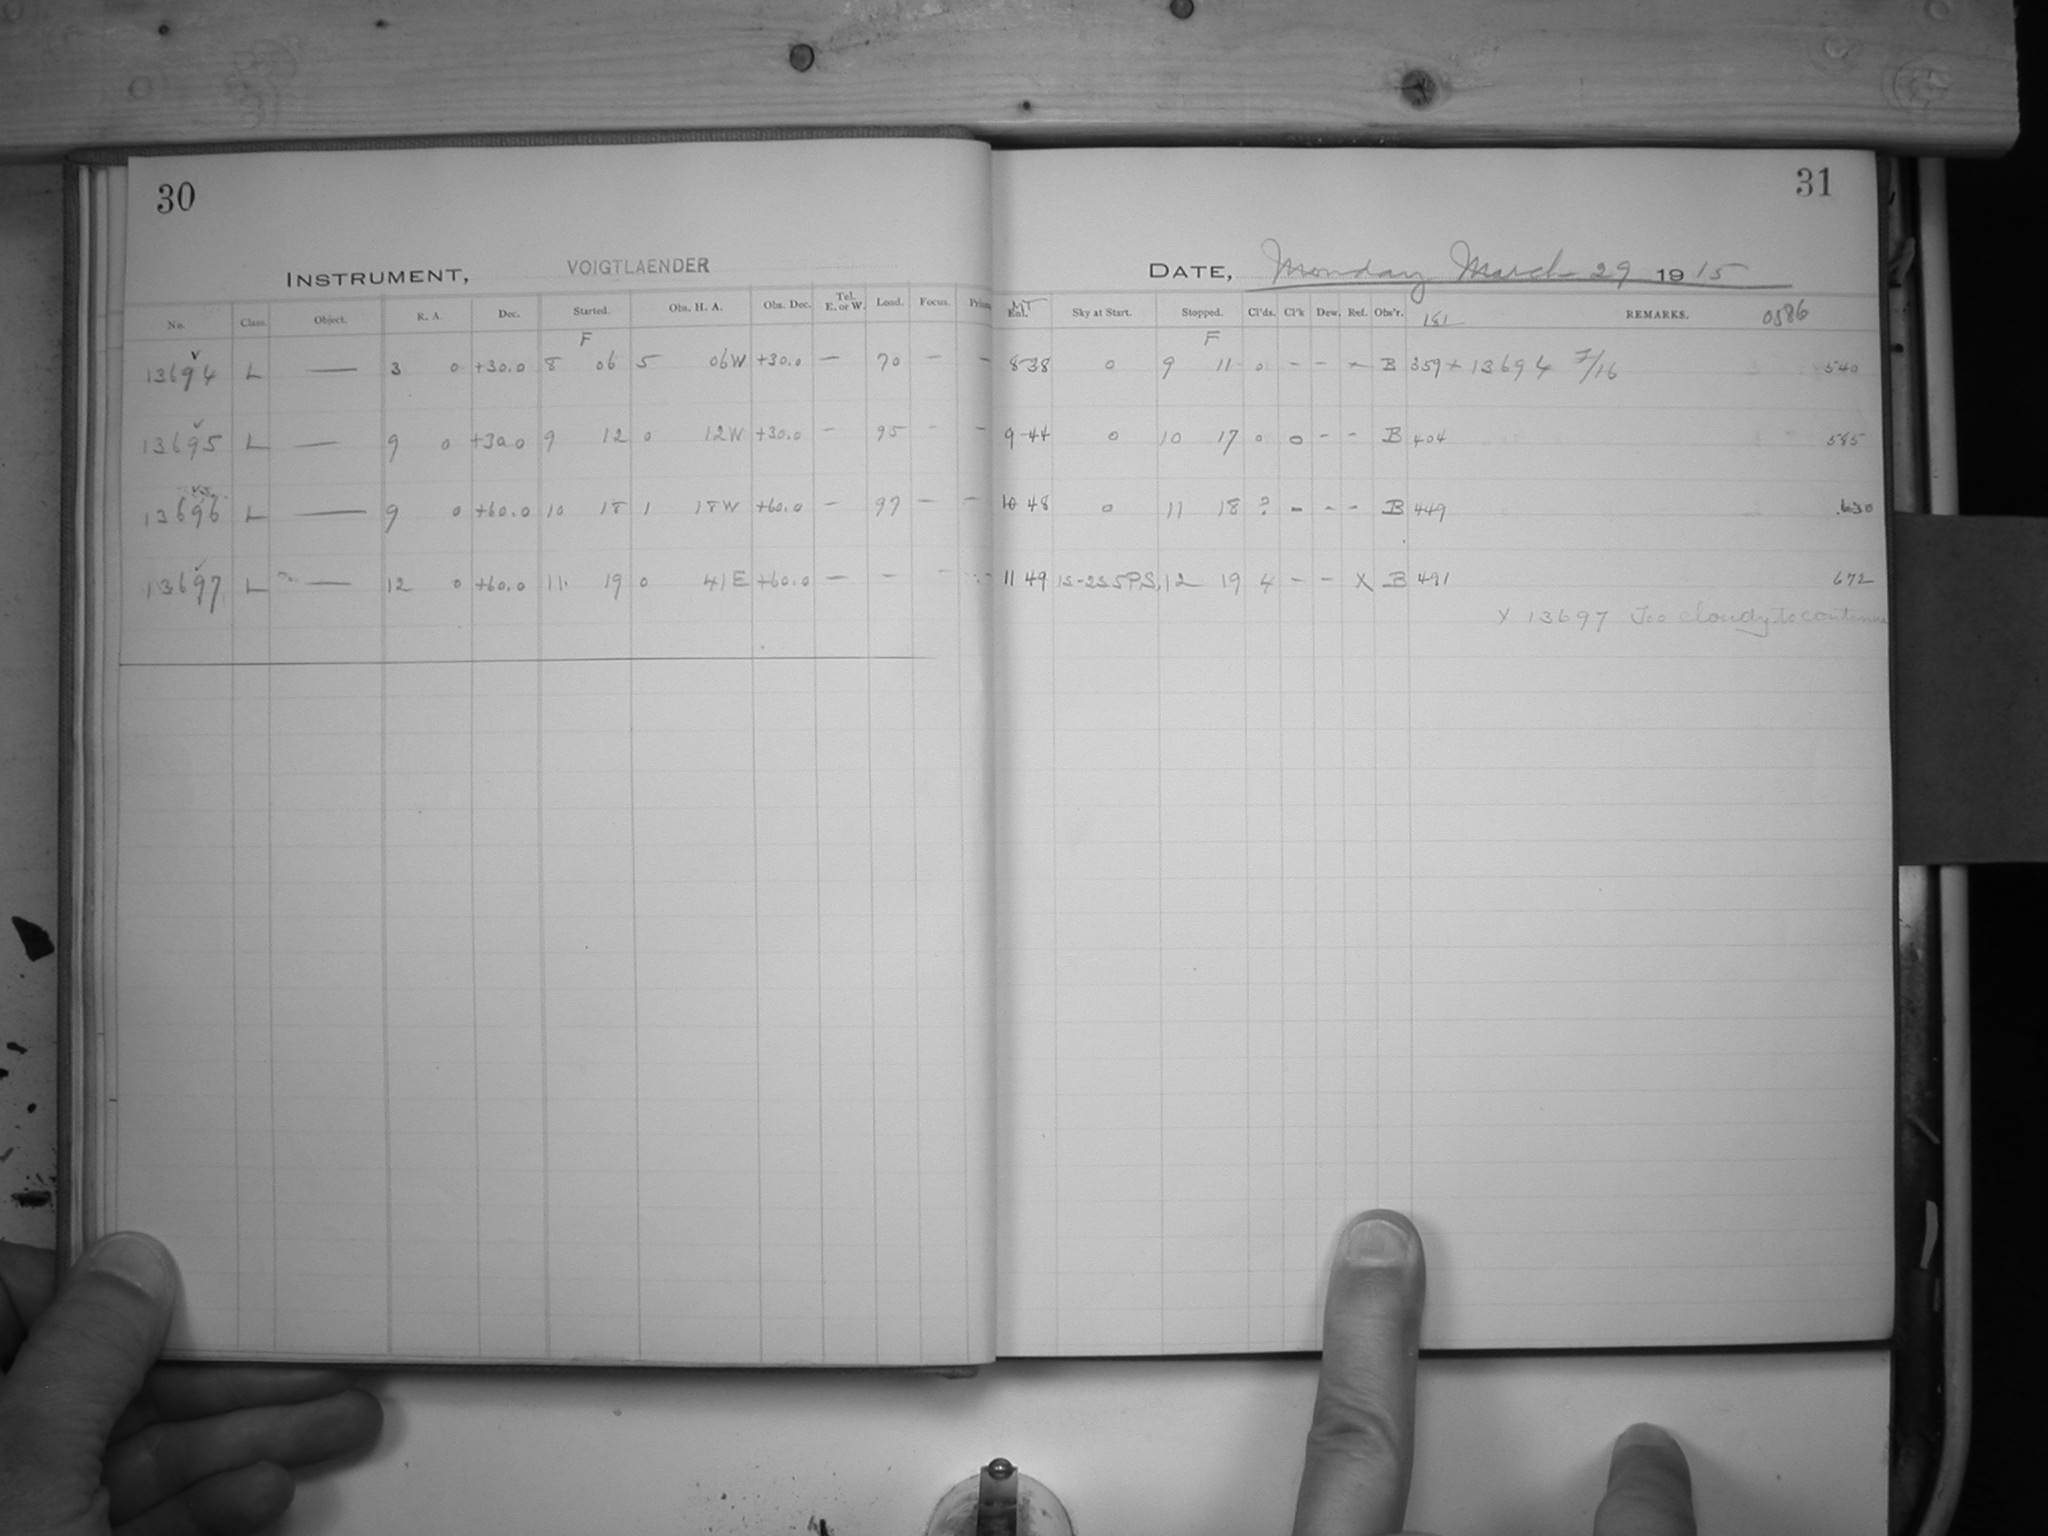 30
31
INSTRUMENT, VOIGTLAENDER
DATE, Monday March 29 1915
No. Class. Object. R. A. Dec. Started. Obs. H. A. Obs. Dec. Tel. E. or W. Load. Focus. MT Sky at Start. Stopped. Cl'ds. Cl'k Dew. Ref. Obs'r. 181 REMARKS. 0586
F F
13694 L — 3 0 +30.0 8 06 5 06W +30.0 — 70 — — 8 38 0 9 11 0 - - - B 359 + 13694 7/16 540
13695 L — 9 0 +30.0 9 12 0 12W +30.0 - 95 - - 9 44 0 10 17 0 0 - - B 404 585
13696 L — 9 0 +60.0 10 18 1 18W +60.0 - 97 — - 10 48 0 11 18 ? - - - B 449 630
13697 L — 12 0 +60.0 11 19 0 41E +60.0 — - - - 11 49 1S-2S5PS, 12 19 4 - - X B 491 672
X 13697 Too cloudy to continue